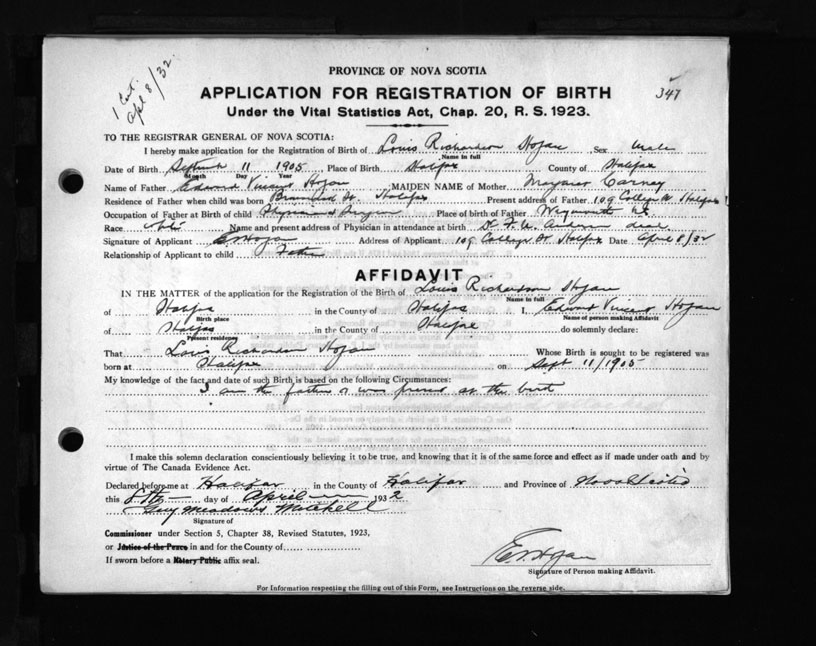 1 Cert.
Apl 8/32.
PROVINCE OF NOVA SCOTIA
APPLICATION FOR REGISTRATION OF BIRTH
347
Under the Vital Statistics Act, Chap. 20, R. S. 1923.
TO THE REGISTRAR GENERAL OF NOVA SCOTIA:
I hereby make application for the Registration of Birth of Louis Richardson Hogan Sex Male
Name in full
Date of Birth September 11 1905 Place of Birth Halifax County of Halifax
Month Day Year
Name of Father Edward Vincent Hogan MAIDEN NAME of Mother Margaret Carney
Residence of Father when child was born St. Halifax Present address of Father 109 College St Halifax
Occupation of Father at Birth of child Physician & Surgeon Place of birth of Father Weymouth N.S.
Race Name and present address of Physician in attendance at birth Dr. Anderson dead
Signature of Applicant E V Hogan Address of Applicant 109 College St Halifax Date April 8/32
Relationship of Applicant to child Father
AFFIDAVIT
IN THE MATTER of the application for the Registration of the Birth of Louis Richardson Hogan
Name in full
of Halifax in the County of Halifax I, Edward Vincent Hogan
Birth place Name of person making Affidavit
of Halifax in the County of Halifax do solemnly declare:
Present residence
That Louis Richardson Hogan Whose Birth is sought to be registered was
born at Halifax on Sept 11/1905
My knowledge of the fact and date of such Birth is based on the following Circumstances:
I am the father & was present at the birth
I make this solemn declaration conscientiously believing it to be true, and knowing that it is of the same force and effect as if made under oath and by
virtue of The Canada Evidence Act.
Declared before me at Halifax in the County of Halifax and Province of Nova Scotia
this 8th day of April 1932
Guy Meadows Mitchell
Signature of
Commissioner under Section 5, Chapter 38, Revised Statutes, 1923,
or Justice of the Peace in and for the County of
If sworn before a Notary Public affix seal.
E V Hogan
Signature of Person making Affidavit.
For Information respecting the filling out of this Form, see Instructions on the reverse side.